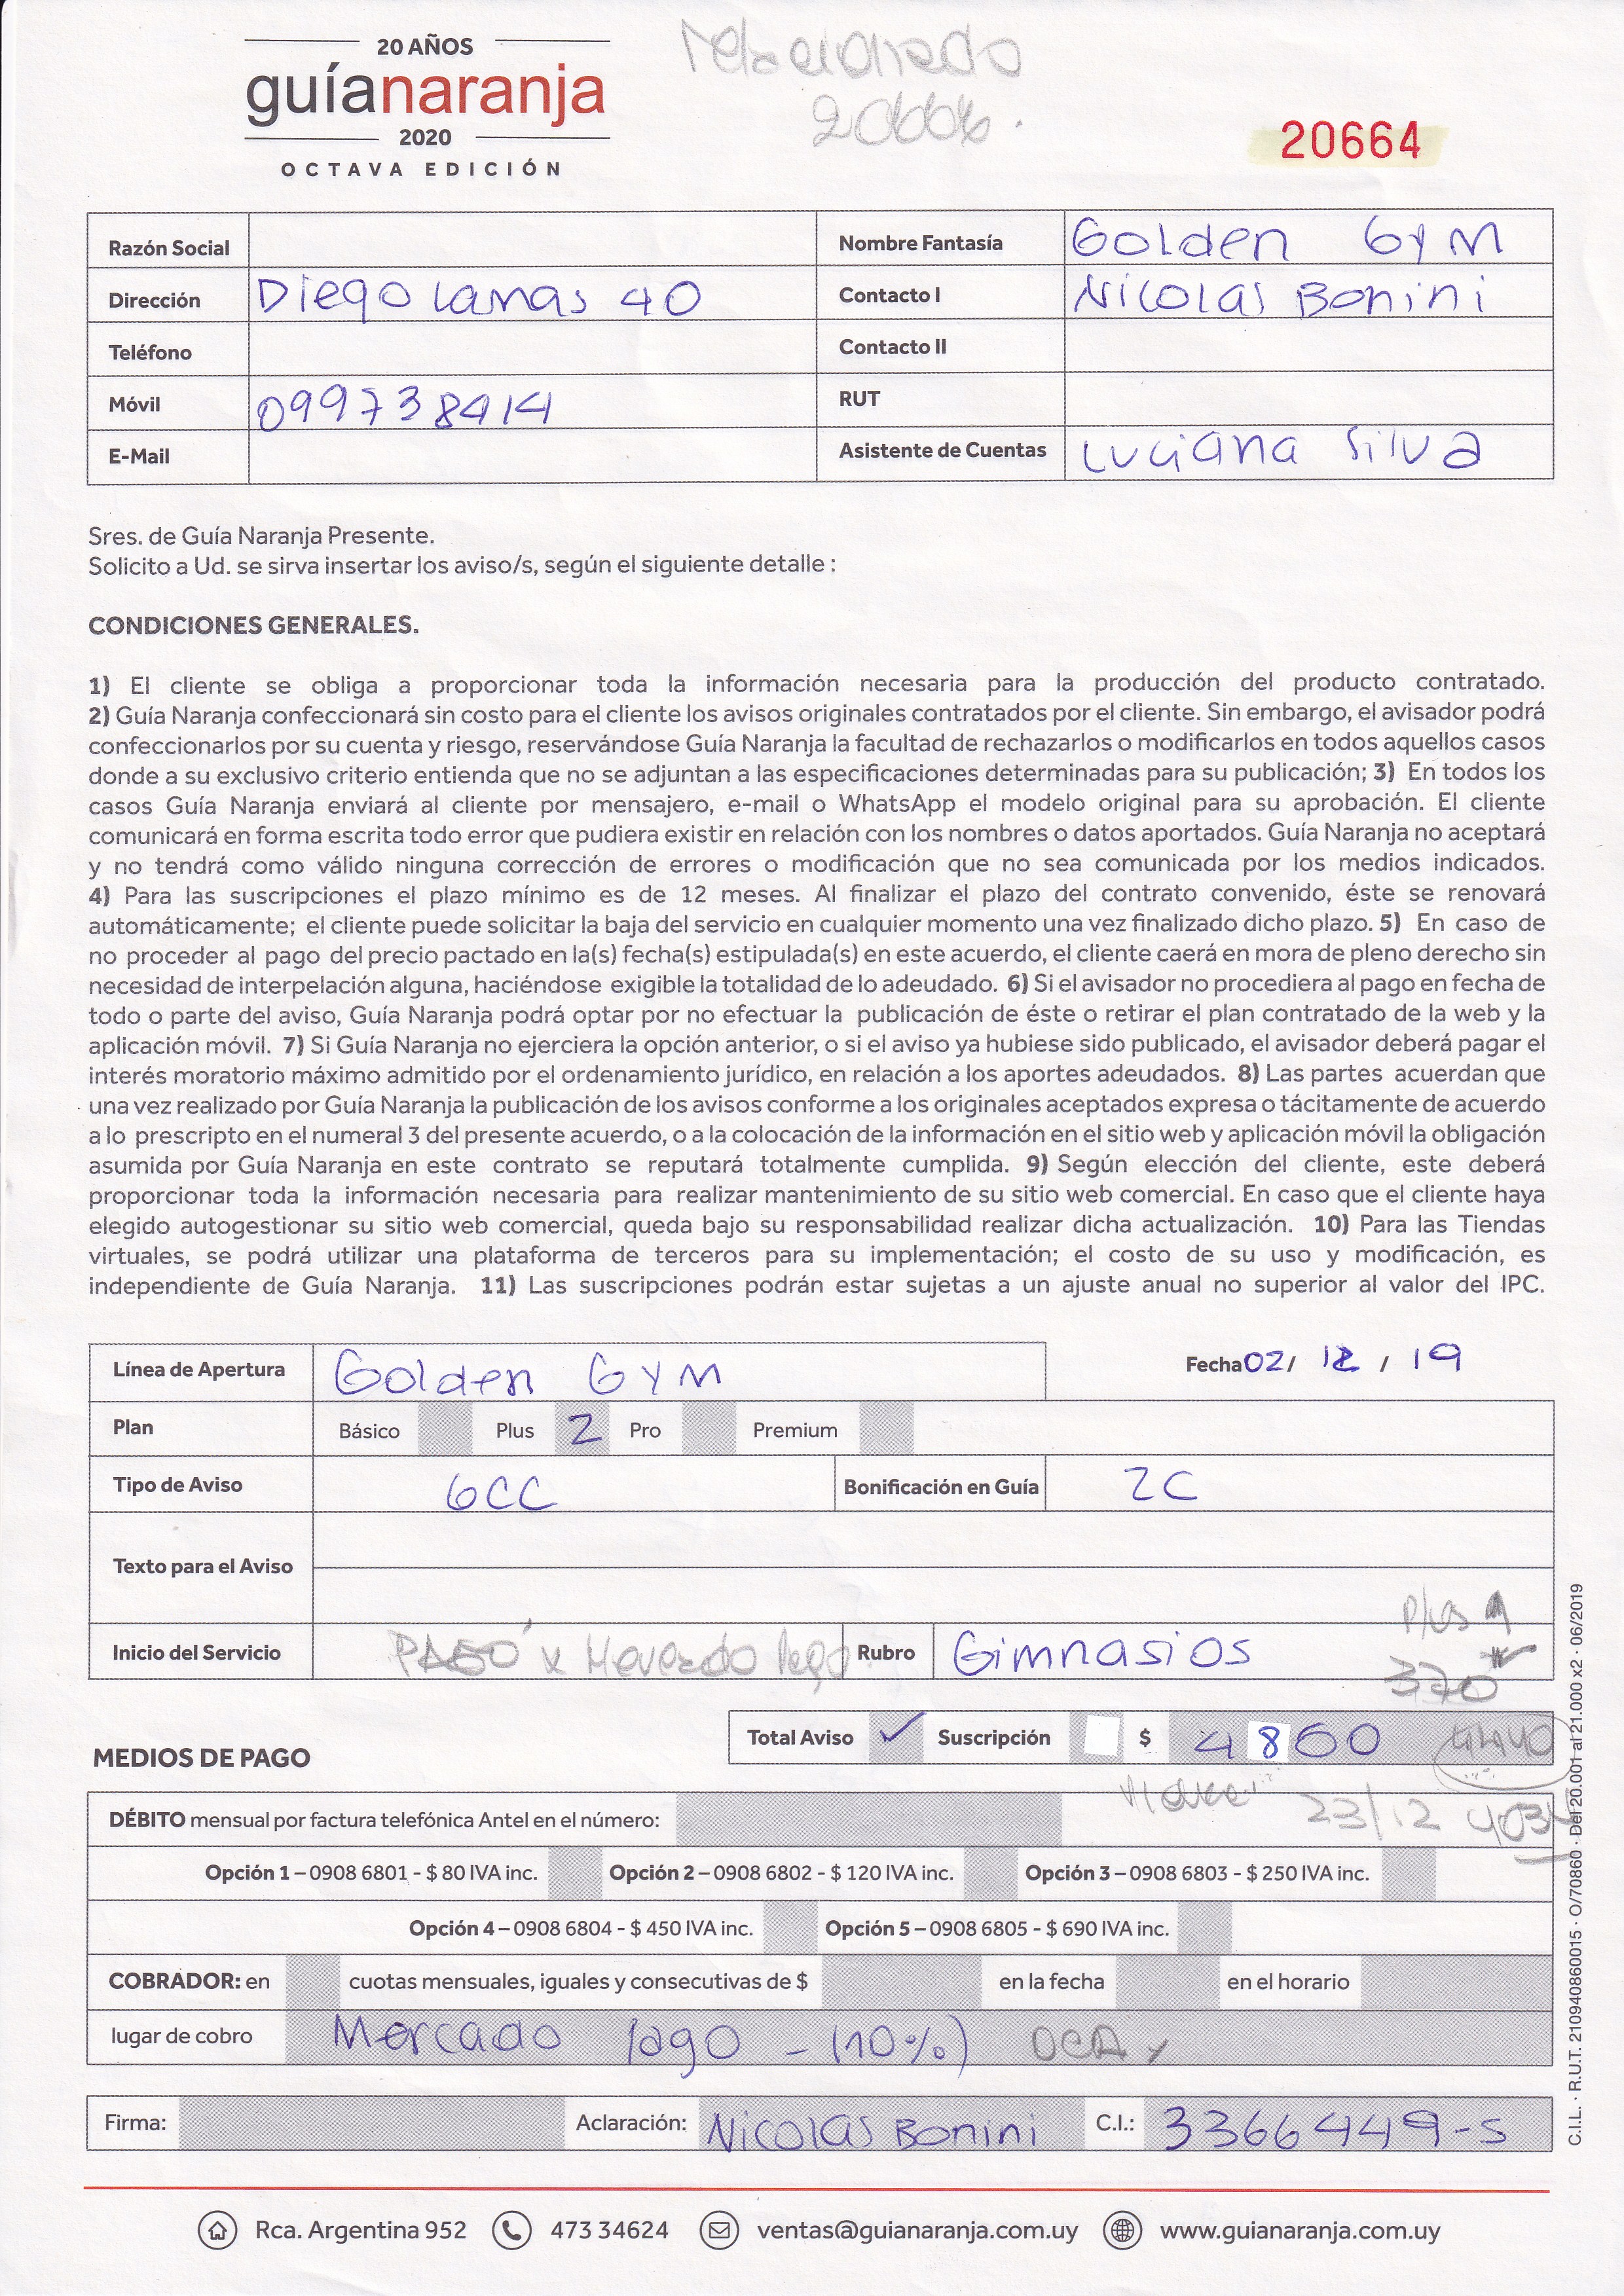 20 AÑOS
guíanaranja
2020
OCTAVA EDICIÓN
relacionado
20664
Razón Social
Nombre Fantasía Golden GYM
Dirección Diego Lamas 40
Contacto I Nicolas Bonini
Teléfono
Contacto II
Móvil 099738414
RUT
E-Mail
Asistente de Cuentas Luciana Silva
Sres. de Guía Naranja Presente.
Solicito a Ud. se sirva insertar los aviso/s, según el siguiente detalle :
CONDICIONES GENERALES.
1) El cliente se obliga a proporcionar toda la información necesaria para la producción del producto contratado.
2) Guía Naranja confeccionará sin costo para el cliente los avisos originales contratados por el cliente. Sin embargo, el avisador podrá
confeccionarlos por su cuenta y riesgo, reservándose Guía Naranja la facultad de rechazarlos o modificarlos en todos aquellos casos
donde a su exclusivo criterio entienda que no se adjuntan a las especificaciones determinadas para su publicación; 3) En todos los
casos Guía Naranja enviará al cliente por mensajero, e-mail o WhatsApp el modelo original para su aprobación. El cliente
comunicará en forma escrita todo error que pudiera existir en relación con los nombres o datos aportados. Guía Naranja no aceptará
y no tendrá como válido ninguna corrección de errores o modificación que no sea comunicada por los medios indicados.
4) Para las suscripciones el plazo mínimo es de 12 meses. Al finalizar el plazo del contrato convenido, éste se renovará
automáticamente; el cliente puede solicitar la baja del servicio en cualquier momento una vez finalizado dicho plazo. 5) En caso de
no proceder al pago del precio pactado en la(s) fecha(s) estipulada(s) en este acuerdo, el cliente caerá en mora de pleno derecho sin
necesidad de interpelación alguna, haciéndose exigible la totalidad de lo adeudado. 6) Si el avisador no procediera al pago en fecha de
todo o parte del aviso, Guía Naranja podrá optar por no efectuar la publicación de éste o retirar el plan contratado de la web y la
aplicación móvil. 7) Si Guía Naranja no ejerciera la opción anterior, o si el aviso ya hubiese sido publicado, el avisador deberá pagar el
interés moratorio máximo admitido por el ordenamiento jurídico, en relación a los aportes adeudados. 8) Las partes acuerdan que
una vez realizado por Guía Naranja la publicación de los avisos conforme a los originales aceptados expresa o tácitamente de acuerdo
a lo prescripto en el numeral 3 del presente acuerdo, o a la colocación de la información en el sitio web y aplicación móvil la obligación
asumida por Guía Naranja en este contrato se reputará totalmente cumplida. 9) Según elección del cliente, este deberá
proporcionar toda la información necesaria para realizar mantenimiento de su sitio web comercial. En caso que el cliente haya
elegido autogestionar su sitio web comercial, queda bajo su responsabilidad realizar dicha actualización. 10) Para las Tiendas
virtuales, se podrá utilizar una plataforma de terceros para su implementación; el costo de su uso y modificación, es
independiente de Guía Naranja. 11) Las suscripciones podrán estar sujetas a un ajuste anual no superior al valor del IPC.
Línea de Apertura Golden GYM
Fecha 02/ 12 / 19
Plan Básico Plus 2 Pro Premium
Tipo de Aviso 6CC Bonificación en Guía 2C
Texto para el Aviso
Plus 1
Inicio del Servicio PAGÓ x Mercado Pago Rubro Gimnasios
370
Total Aviso ✓ Suscripción $ 4860
MEDIOS DE PAGO
23/12 4034
DÉBITO mensual por factura telefónica Antel en el número:
Opción 1 – 0908 6801 - $ 80 IVA inc. Opción 2 – 0908 6802 - $ 120 IVA inc. Opción 3 – 0908 6803 - $ 250 IVA inc.
Opción 4 – 0908 6804 - $ 450 IVA inc. Opción 5 – 0908 6805 - $ 690 IVA inc.
COBRADOR: en cuotas mensuales, iguales y consecutivas de $ en la fecha en el horario
lugar de cobro Mercado Pago - (10%) OCA
Firma: Aclaración: Nicolas Bonini C.I.: 3366449-5
Rca. Argentina 952 473 34624 ventas@guianaranja.com.uy www.guianaranja.com.uy
C.I.L. · R.U.T. 210940860015 · O/70860 · Del 20.001 al 21.000 x2 · 06/2019